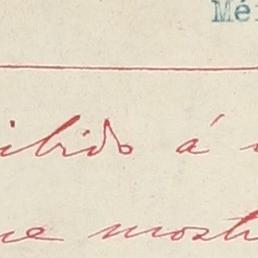 Mé
ibido á
ue most